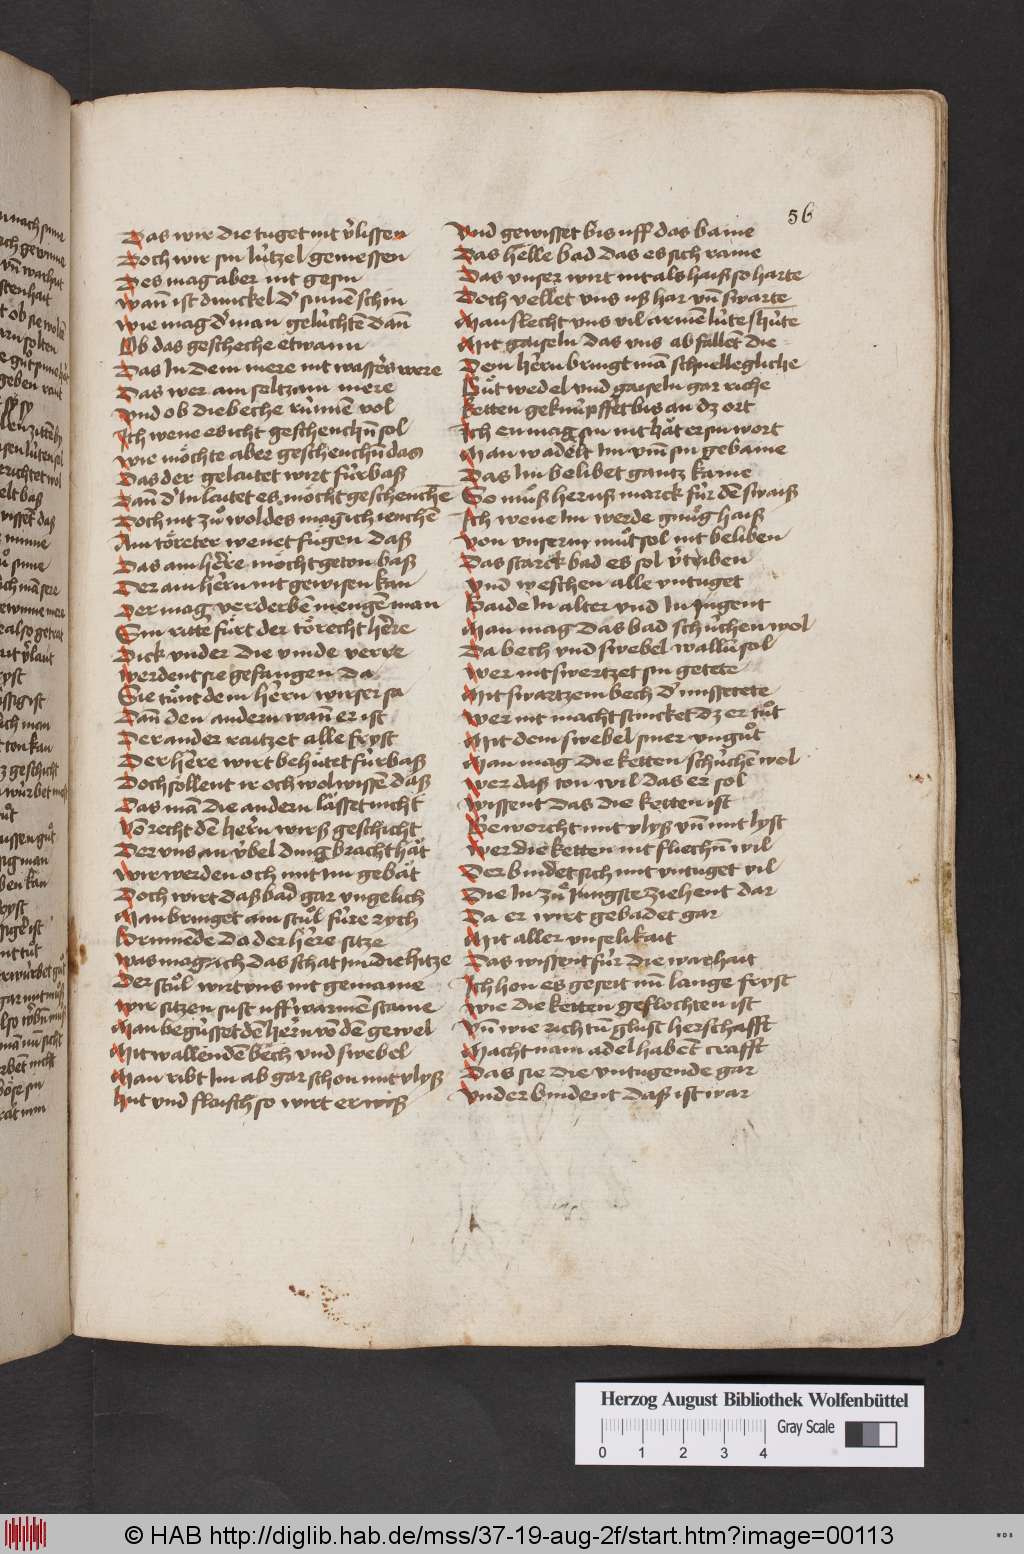 56
Das wir die tuget nit v̉lissen
Doch wir sin lùtzel geniessen
Des mag aber nit gesin
wan̄ ist dunckel d' sinnē schin
wie mag d' man gelùchtē dan̄
Ob das gescheche etwann
Das In dem mere nit wassers were
Das wer ain seltzam mere
vnd ob die beche rùnnē vol
Ich wene es icht geschench̄n sol
wie möchte aber geschench̄n das
Das der gelautet wirt fùrbaß
Dan̄ d' In lautet es möcht geschenchē
Doch nit zuͦ wol des mag ich ienchē
Ain töreter wenet fùgen daß
Das ain herre möcht geton baß
Der ain hern̄ nit gewisen kan
Der mag verderbē mengē man
Sin ritte fuͤrt der törecht here
Dick vnder die vinde verre
werdent sie gefangen da
Sie tuͦnt dem hern̄ wirser sa
Dan̄ den andern wan̄ er ist
Der ander raitzet alle fryst
Der here wirt behuͤtet fùrbaß
Doch sollent ir och wol wissē daß
Das mā die andern lässet nicht
vō recht dē hern̄ wirß geschicht
Der vns an v̉bel ding bracht hät
wir werden och mit im gebät
Doch wirt daß bad gar vngelich
Man bringet ain stuͦl fùre rych
Brinnēde da der here sitze
was mag ich das schat im die hitze
Der stuͦl wirt vns nit gemaine
wir sitzen sust uff warmē staine
Man begùsset dē hern̄ vō dē gewel
Mit wallendē bech vnd swebel
Man ribt Im ab gar schon mit vlyß
hut vnd flaisch so wirt er wiß
vnd gewisset bis uff das baine
Das helle bad das es sich raine
Das vnser wirt nit als haiß so harte
Doch vellet vns uß har vn̄ swarte
Man slecht vns vil armē lùte hùte
Mit gaiseln das vns ab fallēt die
Dem hern̄ bringt mā schnellegliche
Guͦt wedel vnd gaiseln gar riche
ketten geknùpffēt bis an dz ort
Ich en mag sin nit hät er sin wort
Man wadelt Im vm̄ sin gebaine
Das Im belibet gantz kaine
So muͦß heruß marck fùr dē swaiß
Ich wene Im werde gnuͦg haiß
von vnserm muͦt sol nit beliben
Das starck bad es sol v̉triben
vnd weschen alle vntuget
Baide In alter vnd In Jugent
Man mag das bad schùchen wol
Da bech vnd swebel wallē sol
wer nit swertzet sin getete
Mit swartzem bech d' missetete
wer nit macht stincket dz er tuͦt
Mit dem swebel siner vnguͦt
Man mag die ketten schùchē wol
wer daß ton wil das er sol
wissent das die ketten ist
Geworcht mit vlyß vn̄ mit lyst
wer die ketten nit fliech̄n wil
Der bindet sich mit vntuget vil
Die In zuͦ Jungste ziehent dar
Da er wirt gebadet gar
Mit aller vnselikait
Das wissent fùr die warhait
Ich hon es geseit nū lange fryst
wie die ketten geflochten ist
vn̄ wie richtū glust herschafft
Macht nam adel habēt crafft
Das sie die vntugende gar
vnder bindent daß ist war
Herzog August Bibliothek Wolfenbüttel
0 1 2 3 4
Gray Scale
© HAB http://diglib.hab.de/mss/37-19-aug-2f/start.htm?image=00113